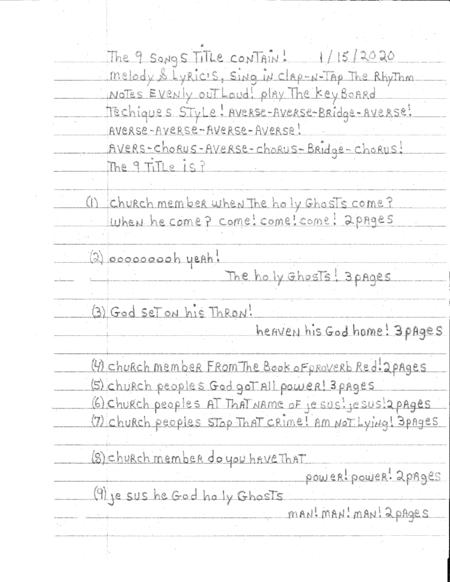 The 9 SONGS TiTLE CONTAiN! 1/15/2020
Melody & LyRiC's, SiNg iN CLAP-N-TAP The RhyThm
NOTES EVENLY OUT LOUd! PLAY The KEYBOARD
TEChiQUES STYLE! AVERSE-AVERSE-BRidge-AVERSE!
AVERSE-AVERSE-AVERSE-AVERSE!
AVERS-ChORUS-AVERSE-ChORUS-BRidge-ChORUS!
The 9 TiTLE iS?
(1) ChURCh MEMBER WhEN The hoLy GhosTs COME?
WhEN he COME? COME! COME! COME! 2 PAGES
(2) oooooooooh yeAh!
The hoLy GhosTs! 3 PAGES
(3) God SET ON his ThRON!
heAVEN his God home! 3 PAGES
(4) ChURCh MEMBER FROM The BOOK OF PROVERB Red! 2 PAGES
(5) ChURCh PEOPLES God goT ALL POWER! 3 PAGES
(6) ChURCh PEOPLES AT ThAT NAME OF je sus! jesus! 2 PAGES
(7) ChURCh PEOPLES STOP ThAT CRime! AM NOT Lying! 3 PAGES
(8) ChURCh MEMBER do you hAVE ThAT
POWER! POWER! 2 PAGES
(9) je sus he God hoLy GhosTs
MAN! MAN! MAN! 2 PAGES